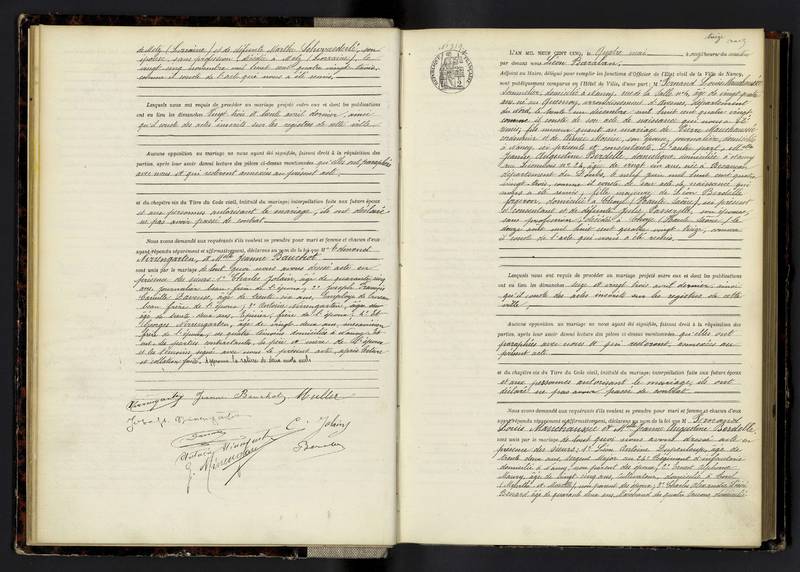 de Metz (Lorraine) et de défunte Marthe
épouse, sans profession, décédée à Metz (Lorraine), le
vingt cinq novembre mil huit cent quatre vingt
comme il conste de l'acte qui nous a été remis.
Lesquels nous ont requis de procéder au mariage projeté entre eux et dont les publications
ont eu lieu les dimanches vingt trois et trente avril dernier, ainsi
qu'il conste des actes inscrits sur les registres de cette ville
Aucune opposition au mariage ne nous ayant été signifiée, faisant droit à la réquisition des
parties, après leur avoir donné lecture des pièces ci-dessus mentionnées qu'elles ont paraphées
avec nous et qui resteront annexées au présent acte
et du chapitre six du Titre du Code civil, intitulé du mariage; interpellation faite aux futurs époux
et aux personnes autorisant le mariage, ils ont déclaré
ne pas avoir passé de contrat
Nous avons demandé aux requérants s'ils veulent se prendre pour mari et femme et chacun d'eux
ayant répondu séparément et affirmativement, déclarons au nom de la loi que Mr Edmond
Nirrengarten, et Mlle Jeanne Bauchot
sont unis par le mariage de tout quoi nous avons dressé acte en
présence des sieurs, 1° Charles Jolain, âgé de quarante cinq
ans, journalier, beau frère de l'époux; 2° Joseph François
âgé de trente six ans, employé de
beau frère de l'époux; 3° Antoine Nirrengarten, âgé de
âgé de trente deux ans, épicier, frère de l'époux; 4° et
Georges Nirrengarten, âgé de vingt deux ans, mécanicien
frère de l'époux, ces quatre témoins domiciliés à Nancy. Et
ont les parties contractantes, le père et mère de l'épouse
et les témoins, signé avec nous le présent acte, après lecture
et collation faite.
Nirrengarten Jeanne Bauchot Muller
Joseph Nirrengarten
C. Jolain
Antoine Nirrengarten
G. Nirrengarten
N° 319
L'AN MIL NEUF CENT CINQ, le quatre mai à onze heures du matin
par devant nous Léon Baralan,
Adjoint au Maire, délégué pour remplir les fonctions d'Officier de l'Etat civil de la Ville de Nancy,
sont publiquement comparus en l'Hôtel de Ville, d'une part: Mr Fernand Louis
sommelier, domicilié à Nancy, rue de la Salle n° 4, âgé de vingt quatre
ans, né au Quesnoy, arrondissement d'Avesnes, département
du Nord, le trente un décembre mil huit cent quatre vingt
comme il conste de son acte de naissance qui nous a été
remis, fils mineur quant au mariage de Pierre
cordonnier et de son épouse, journalière, domiciliés
à Nancy, ici présents et consentants. D'autre part, Mlle
Jeanne Augustine Bardelle, domestique, domiciliée à Nancy
n° 24, âgée de vingt un ans, née à Besançon
département du Doubs, le neuf juin mil huit cent quatre
vingt trois, comme il conste de son acte de naissance qui
nous a été remis, fille majeure de Léon Bardelle
forgeron, domicilié à Choye (Haute Saône), ici présent
et consentant et de défunte son épouse,
sans profession, décédée à Choye (Haute Saône) le
douze août mil huit cent quatre vingt treize, comme
il conste de l'acte qui nous a été remis.
Lesquels nous ont requis de procéder au mariage projeté entre eux et dont les publications
ont eu lieu les dimanches seize et vingt trois avril dernier ainsi
qu'il conste des actes inscrits sur les registres de cette
ville
Aucune opposition au mariage ne nous ayant été signifiée, faisant droit à la réquisition des
parties, après leur avoir donné lecture des pièces ci-dessus mentionnées qu'elles ont
paraphées avec nous et qui resteront annexées au
présent acte
et du chapitre six du Titre du Code civil, intitulé du mariage; interpellation faite aux futurs époux
et aux personnes autorisant le mariage, ils ont
déclaré ne pas avoir passé de contrat
Nous avons demandé aux requérants s'ils veulent se prendre pour mari et femme et chacun d'eux
ayant répondu séparément et affirmativement, déclarons au nom de la loi que Mr Fernand
Louis et Mlle Jeanne Augustine Bardelle
sont unis par le mariage de tout quoi nous avons dressé acte en
présence des sieurs, 1° Léon Antoine âgé de
trente deux ans, sergent major au 26e Régiment d'infanterie
domicilié à Nancy, non parent des époux; 2° Ernest Alphonse
âgé de vingt cinq ans, cultivateur, domicilié à
(Meurthe et Moselle), non parent des époux; 3° Charles Alexandre
âgé de quarante deux ans, marchand des quatre saisons, domicilié